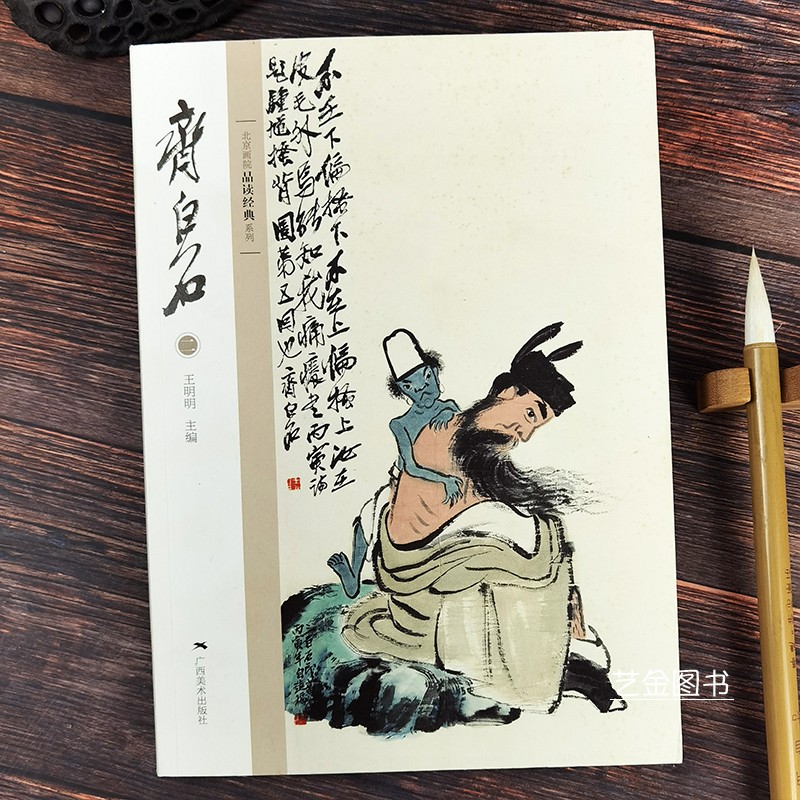 齊白石
二
王明明 主编
广西美术出版社
北京画院 品读经典 系列
不在下偏搔下不在上偏搔上汝在
皮毛外焉能知我痛癢
題鍾馗搔背圖第五回也齊白石
艺金图书